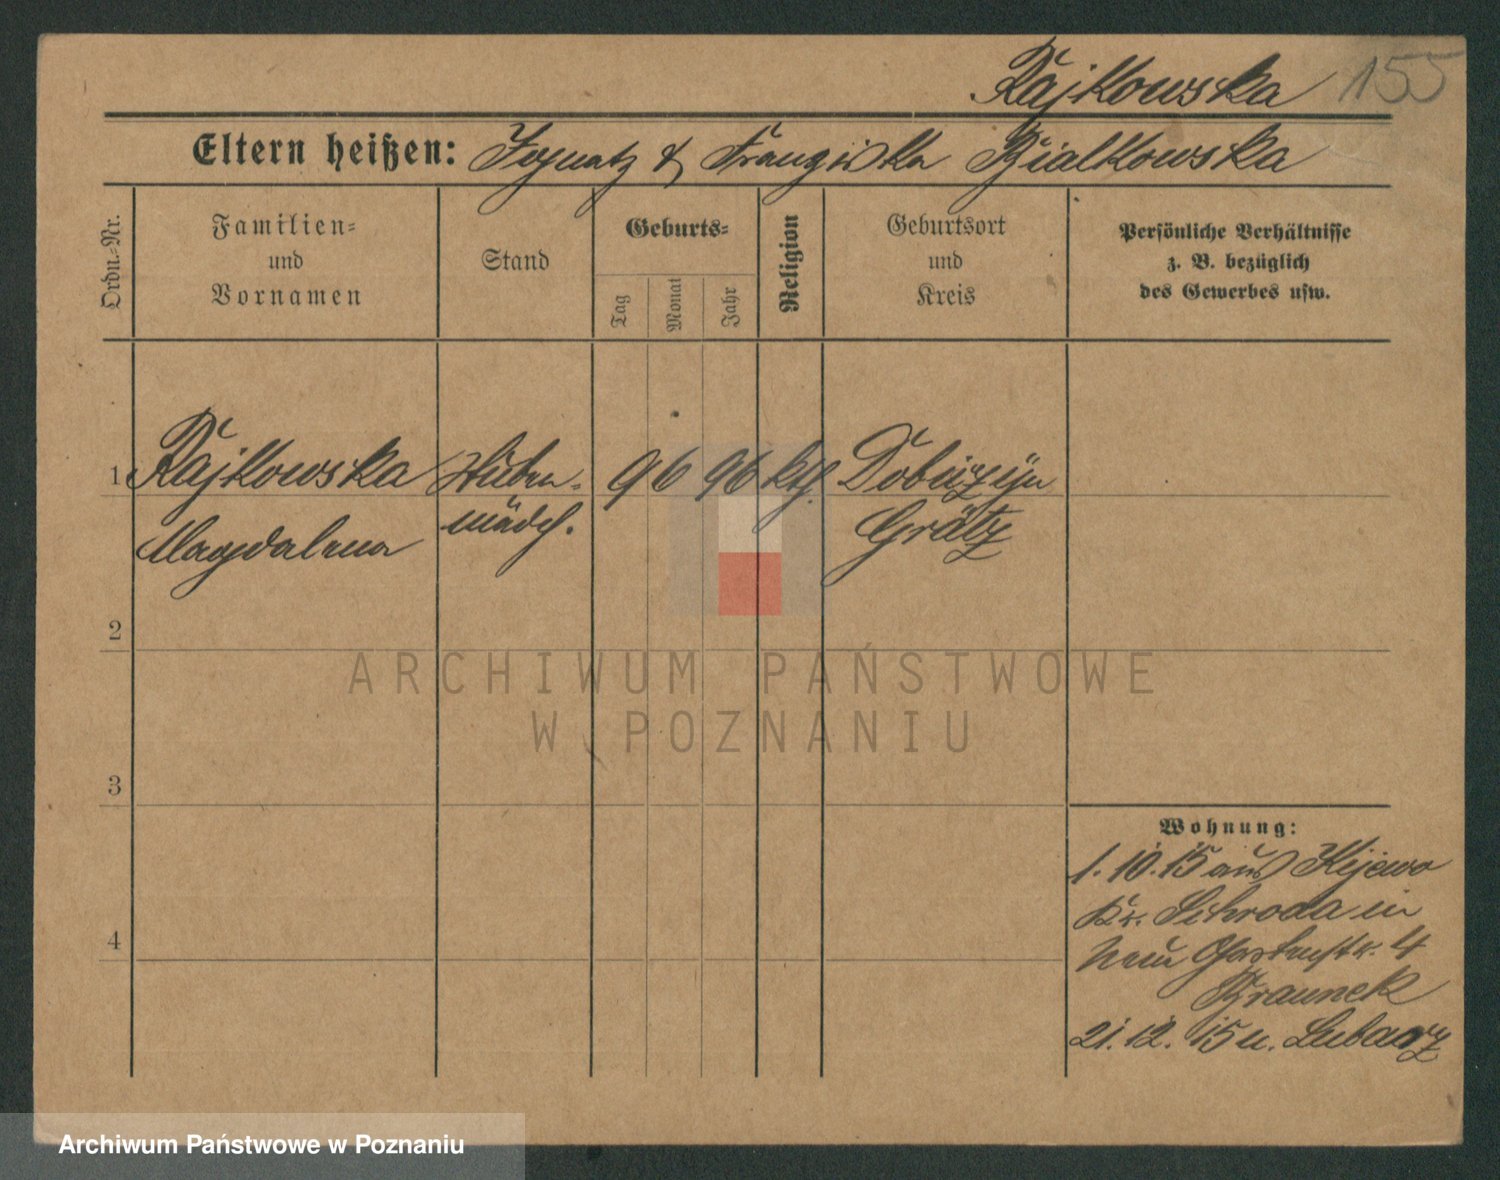 Rajkowska 155
Eltern heißen: Ignatz & Franziska Bialkowska
Ordn.-Nr.
Familien-
und
Vornamen
Stand
Geburts-
Tag
Monat
Jahr
Religion
Geburtsort
und
Kreis
Persönliche Verhältnisse
z. B. bezüglich
des Gewerbes usw.
1 Rajkowska Stuben- 9 6 96 kth.
Magdalena mädch. Grätz
2
3
4
Wohnung:
1.10.15 aus Kijewo
Kr. Schroda in
Neue Gartenstr. 4
Braunek
21.12.15 n.
ARCHIWUM PAŃSTWOWE
W POZNANIU
Archiwum Państwowe w Poznaniu